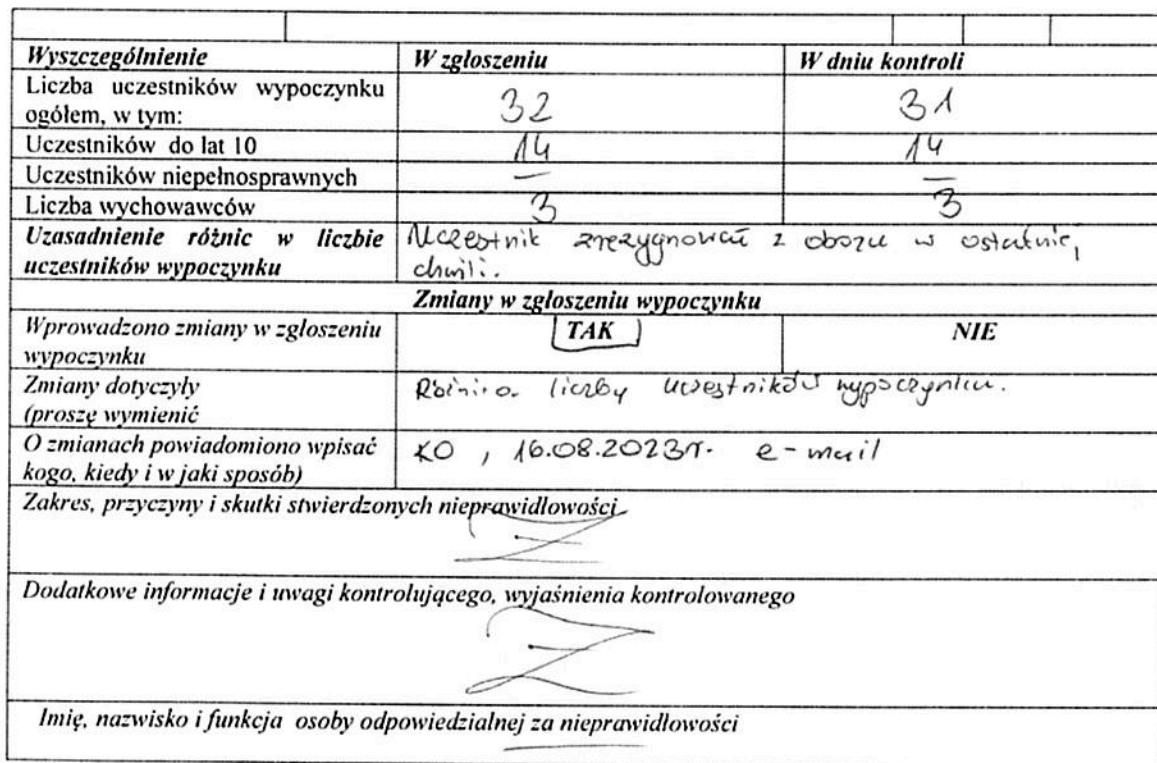 Wyszczególnienie W zgłoszeniu W dniu kontroli
Liczba uczestników wypoczynku
ogółem, w tym: 32 31
Uczestników do lat 10 14 14
Uczestników niepełnosprawnych — —
Liczba wychowawców 3 3
Uzasadnienie różnic w liczbie Uczestnik zrezygnował z obozu w ostatniej
uczestników wypoczynku chwili.
Zmiany w zgłoszeniu wypoczynku
Wprowadzono zmiany w zgłoszeniu TAK NIE
wypoczynku
Zmiany dotyczyły Różnica liczby uczestników wypoczynku.
(proszę wymienić
O zmianach powiadomiono wpisać KO , 16.08.2023r. e-mail
kogo, kiedy i w jaki sposób)
Zakres, przyczyny i skutki stwierdzonych nieprawidłowości
Dodatkowe informacje i uwagi kontrolującego, wyjaśnienia kontrolowanego
Imię, nazwisko i funkcja osoby odpowiedzialnej za nieprawidłowości
—